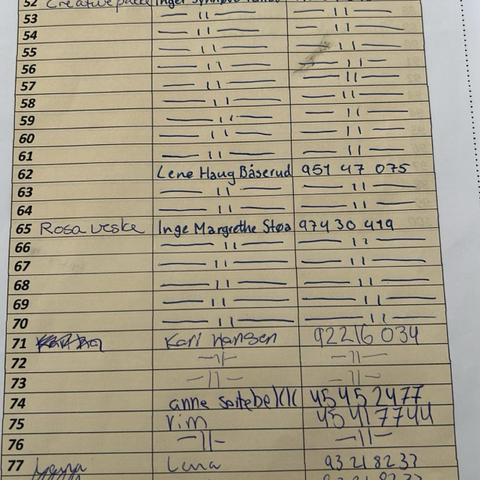 52
53 — 11 — — 11 —
54 — 11 — — 11 —
55 — 11 — — 11 —
56 — 11 — — 11 —
57 — 11 — — 11 —
58 — 11 — — 11 —
59 — 11 — — 11 —
60 — 11 — — 11 —
61 — 11 — — 11 —
62 Lene Haug Båserud 951 47 075
63 — 11 — — 11 —
64 — 11 — — 11 —
65 Rosa veske Inge Margrethe Støa 974 30 419
66 — 11 — — 11 —
67 — 11 — — 11 —
68 — 11 — — 11 —
69 — 11 — — 11 —
70 — 11 — — 11 —
71 Kari Hansen 92216 034
72 — 11 — — 11 —
73 — 11 — — 11 —
74 anne 45452477
75 45417744
76 — 11 — — 11 —
77 93 218233